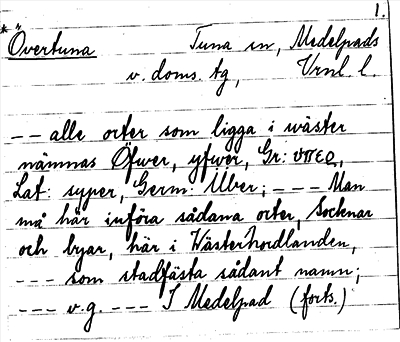 1.
*"Övertuna Tuna sn, Medelpads
v. doms. tg, Vrnl. l.
-- alle orter som ligga i wäster
nämnas Öfwer, yfwer, Gr: υπεϱ,
Lat: super, Germ: Über; --- Man
må här införa sådana orter, Socknar
och byar, här i Wästerhordlanden,
--- som stadfästa sådant namn;
--- v.g. --- I Medelpad (forts.)